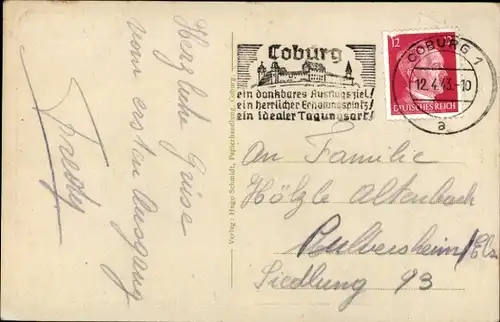 Herzliche Grüsse
vom ersten Ausgang
Verlag: Hugo Schmidt, Papierhandlung, Coburg
Coburg
ein dankbares Ausflugsziel!
ein herrlicher Erholungsplatz!
ein idealer Tagungsort!
12
12
DEUTSCHES REICH
COBURG 1
12.4.43.-10
a
An Familie
Hölzle Altenbach
Pulversheim/Els.
Siedlung 93